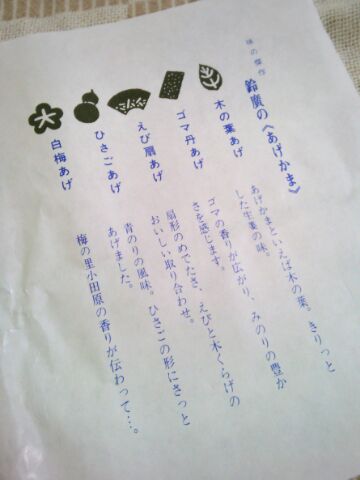 味の傑作
鈴廣の《あげかま》
木の葉あげ
ゴマ丹あげ
えび扇あげ
ひさごあげ
白梅あげ
あげかまといえば木の葉。きりっと
した生姜の味。
ゴマの香りが広がり、みのりの豊か
さを感じます。
扇形のめでたさ、えびと木くらげの
おいしい取り合わせ。
青のりの風味。ひさごの形にさっと
あげました。
梅の里小田原の香りが伝わって…。